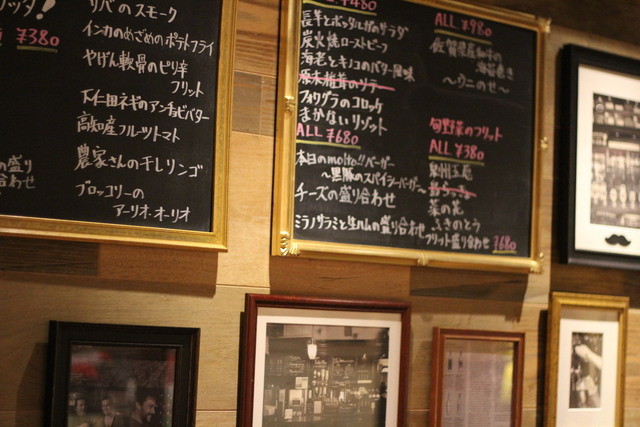 ¥380
レバのスモーク
インカのめざめのポテトフライ
やげん軟骨のピリ辛
フリット
下仁田ネギのアンチョビバター
高知産フルーツトマト
農家さんのチレリンゴ
ブロッコリーの
アーリオ・オーリオ
の盛り
わせ
¥480
長芋とボッタルガのサラダ
炭火焼ローストビーフ
海老とキノコのバター風味
フォワグラのコロッケ
まかないリゾット
ALL ¥680
本日のmolto!!バーガー
〜黒豚のスパイシーバーガー〜
チーズの盛り合わせ
ミラノサラミと生ハムの盛り合わせ
ALL ¥980
佐賀県産和牛の
海苔巻き
〜ウニのせ〜
旬野菜のフリット
ALL ¥380
泉州玉ねぎ
菜の花
ふきのとう
フリット盛り合わせ ¥680